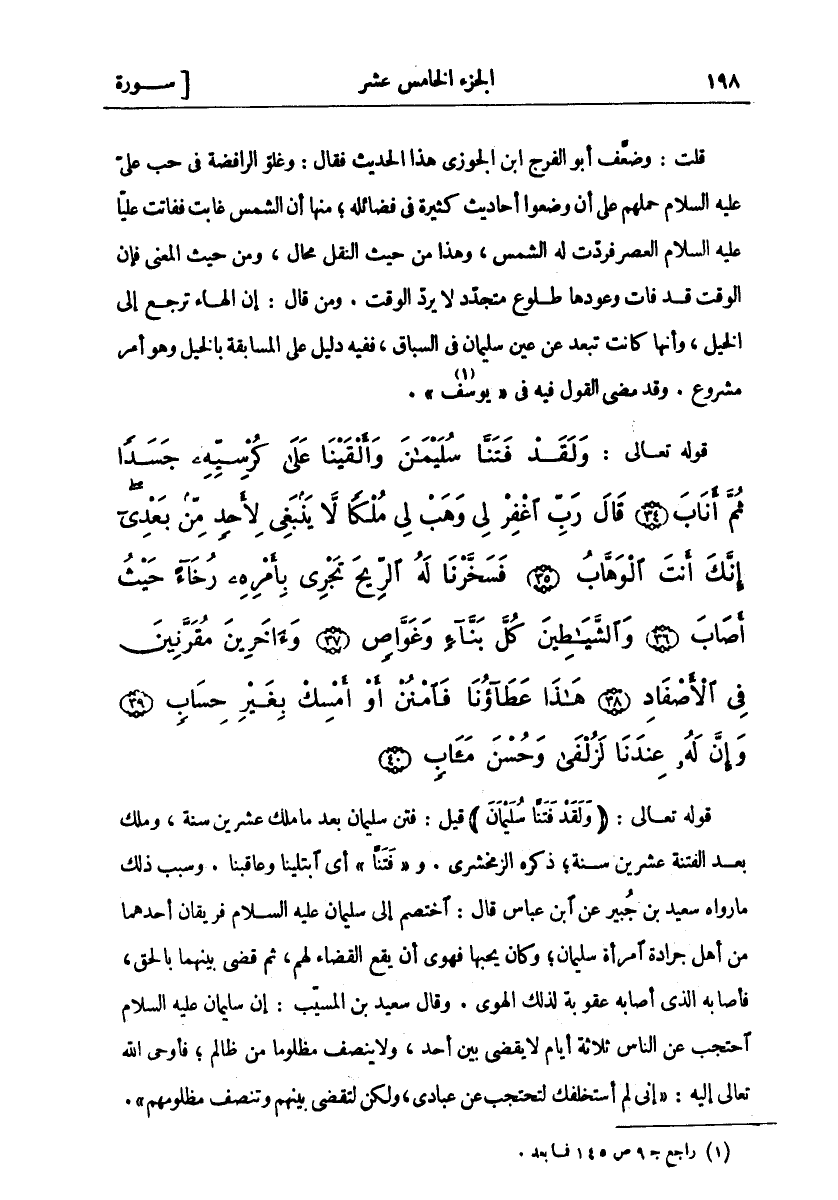 ١٩٨ الجزء الخامس عشر [ ســورة
قلت : وضعَّف أبو الفرج ابن الجوزى هذا الحديث فقال : وغلوّ الرافضة فى حب علىّ
عليه السلام حملهم على أن وضعوا أحاديث كثيرة فى فضائله ؛ منها أن الشمس غابت ففاتت عليًّا
عليه السلام العصر فردّت له الشمس ، وهذا من حيث النقل محال ، ومن حيث المعنى فإن
الوقت قـد فات وعودها طـلوع متجدّد لا يردّ الوقت . ومن قال : إن الهـاء ترجـع إلى
الخيل ، وأنها كانت تبعد عن عين سليمان فى السباق ، ففيه دليل على المسابقة بالخيل وهو أمر
مشروع . وقد مضى القول فيه فى « يوسف (١) » .
قوله تعـالى : وَلَقَـدْ فَتَنَّا سُلَيْمَـٰنَ وَأَلْقَيْنَا عَلَىٰ كُرْسِـيِّهِۦ جَسَـدًا
ثُمَّ أَنَابَ ﴿٣٤﴾ قَالَ رَبِّ ٱغْفِرْ لِى وَهَبْ لِى مُلْكًا لَّا يَنۢبَغِى لِأَحَدٍ مِّنۢ بَعْدِىٓ ۖ
إِنَّكَ أَنتَ ٱلْوَهَّابُ ﴿٣٥﴾ فَسَخَّرْنَا لَهُ ٱلرِّيحَ تَجْرِى بِأَمْرِهِۦ رُخَآءً حَيْثُ
أَصَابَ ﴿٣٦﴾ وَٱلشَّيَـٰطِينَ كُلَّ بَنَّـآءٍ وَغَوَّاصٍ ﴿٣٧﴾ وَءَاخَرِينَ مُقَرَّنِينَ
فِى ٱلْأَصْفَادِ ﴿٣٨﴾ هَـٰذَا عَطَآؤُنَا فَٱمْنُنْ أَوْ أَمْسِكْ بِغَيْرِ حِسَابٍ ﴿٣٩﴾
وَإِنَّ لَهُۥ عِندَنَا لَزُلْفَىٰ وَحُسْنَ مَـَٔابٍ ﴿٤٠﴾
قوله تعـالى : ﴿ وَلَقَدْ فَتَنَّا سُلَيْمَانَ ﴾ قيل : فتن سليمان بعد ما ملك عشرين سنة ، وملك
بعـد الفتنة عشرين سـنة ؛ ذكره الزمخشرى . و « فَتَنَّا » أى ٱبتلينا وعاقبنا . وسبب ذلك
ما رواه سعيد بن جُبير عن ٱبن عباس قال : ٱختصم إلى سليمان عليه السـلام فريقان أحدهما
من أهل جرادة ٱمرأة سليمان ؛ وكان يحبها فهوى أن يقع القضاء لهم ، ثم قضى بينهما بالحق ،
فأصابه الذى أصابه عقوبة لذلك الهوى . وقال سعيد بن المسيّب : إن سليمان عليه السلام
ٱحتجب عن الناس ثلاثة أيام لا يقضى بين أحد ، ولا ينصف مظلوما من ظالم ؛ فأوحى الله
تعالى إليه : «إنى لم أستخلفك لتحتجب عن عبادى ، ولكن لتقضى بينهم وتنصف مظلومهم» .
(١) راجع جـ ٩ ص ١٤٥ فـما بعد .